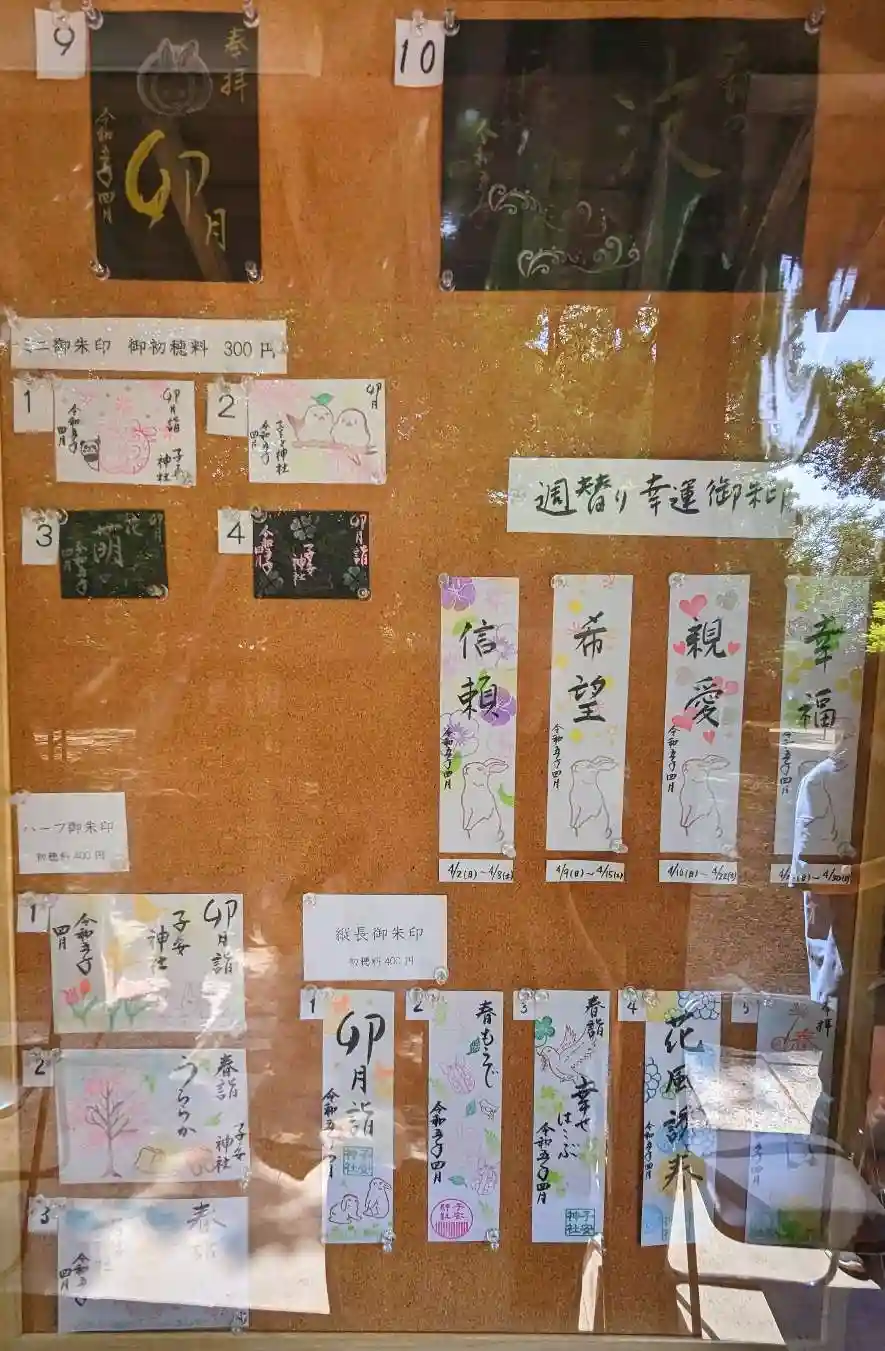 9
奉拝
卯月
令和五年四月
10
令和五年
ミニ御朱印 御初穂料 300円
1
卯月詣
子安神社
令和五年
四月
2
卯月
子安神社
令和五年
四月
3
卯月
花萌
令和五年
四月
4
卯月詣
子安神社
令和五年
四月
週替り幸運御朱印
信頼
令和五年四月
4/2(日)~4/8(土)
希望
令和五年四月
4/9(日)~4/15(土)
親愛
令和五年四月
4/16(日)~4/22(土)
幸福
令和五年四月
ハーフ御朱印
初穂料400円
1
卯月詣
子安神社
令和五年
四月
2
春詣
うららか
子安神社
3
春詣
令和五年
四月
縦長御朱印
初穂料400円
1
卯月詣
令和五年四月
子安神社
2
春もうで
令和五年四月
子安神社
3
春詣
幸せはこぶ
令和五年四月
子安神社
4
花風誘来
令和五年四月
5
奉拝